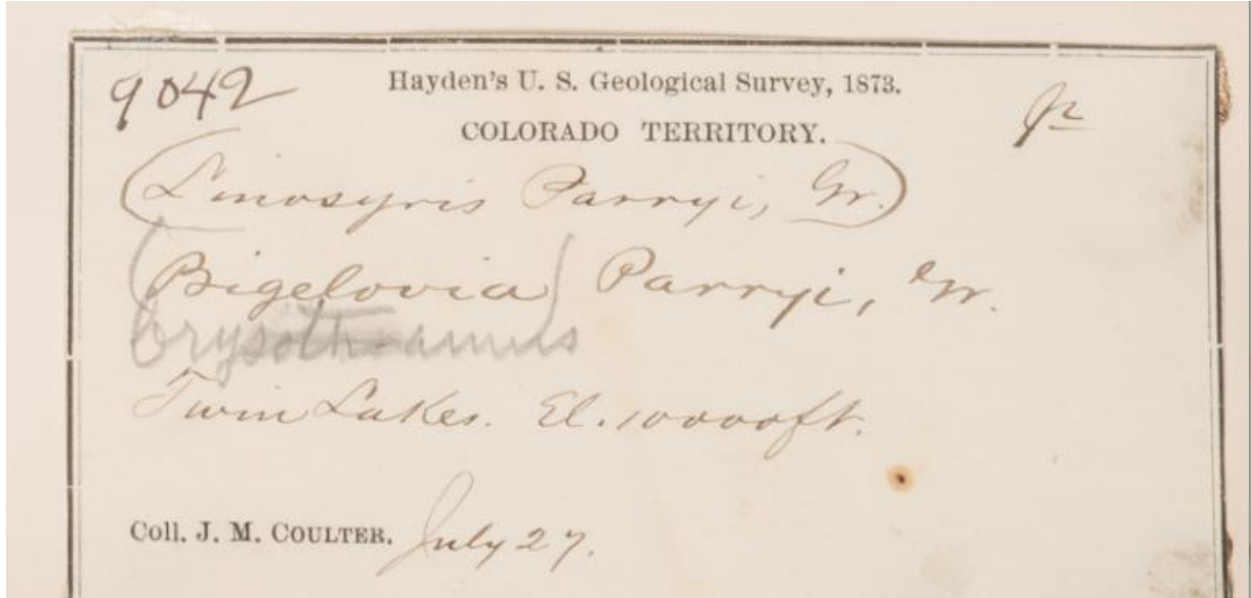 9042
Hayden's U. S. Geological Survey, 1873.
COLORADO TERRITORY.
(Linosyris Parryi, Gr.)
(Bigelovia) Parryi, Gr.
Crysothamnus
Twin Lakes. El. 10000ft.
Coll. J. M. COULTER. July 27.